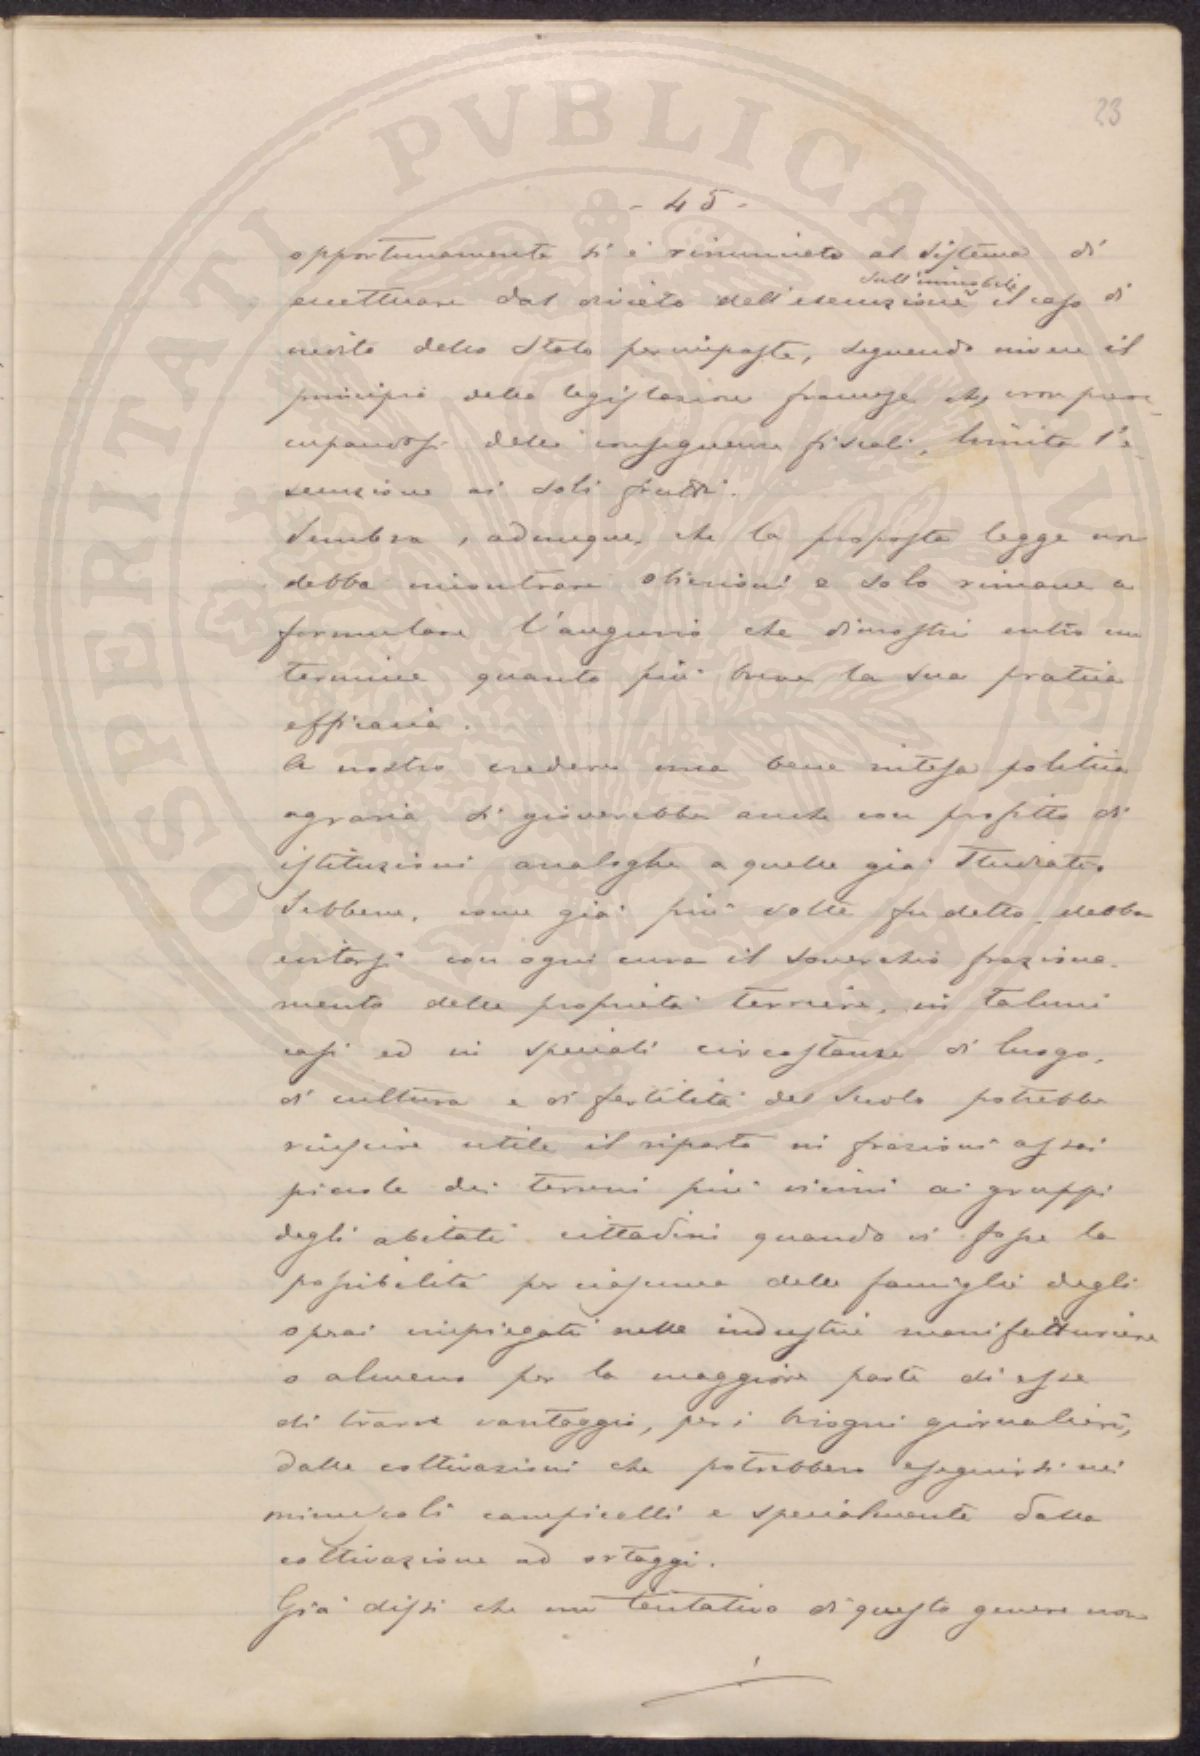 23
- 45 -
opportunamente si è rinunciato al sistema di
sull'immobile
eccettuare dal divieto dell'esecuzione il caso di
credito dello Stato per imposte, seguendo invece il
principio della legislazione francese che, non preoc-
cupandosi delle conseguenze fiscali, limita l'e-
secuzione ai soli frutti.
Sembra, adunque, che la proposta legge non
debba incontrare obiezioni e solo rimane a
formulare l'augurio che dimostri entro un
termine quanto più breve la sua pratica
efficacia.
A nostro credere una bene intesa politica
agraria si gioverebbe anche con profitto di
istituzioni analoghe a quelle già studiate.
Sebbene, come già più volte fu detto, debba
evitarsi con ogni cura il soverchio fraziona-
mento delle proprietà terriere, in taluni
casi ed in speciali circostanze di luogo,
di cultura e di fertilità del suolo potrebbe
riuscire utile il riparto in frazioni assai
piccole dei terreni più vicini ai gruppi
degli abitati cittadini quando vi fosse la
possibilità per ciascuna delle famiglie degli
operai impiegati nelle industrie manifatturiere
o almeno per la maggiore parte di esse
di trarre vantaggio, per i bisogni giornalieri,
dalle coltivazioni che potrebbero eseguirsi nei
minuscoli campicelli e specialmente dalla
coltivazione ad ortaggi.
Già dissi che un tentativo di questo genere non
PROSPERITATI PVBLICAE